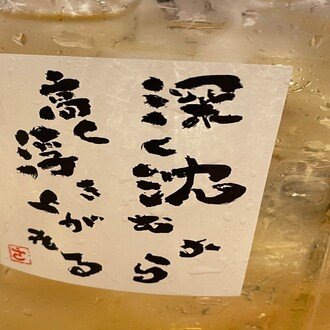 深く沈むから
高く浮き上がれる